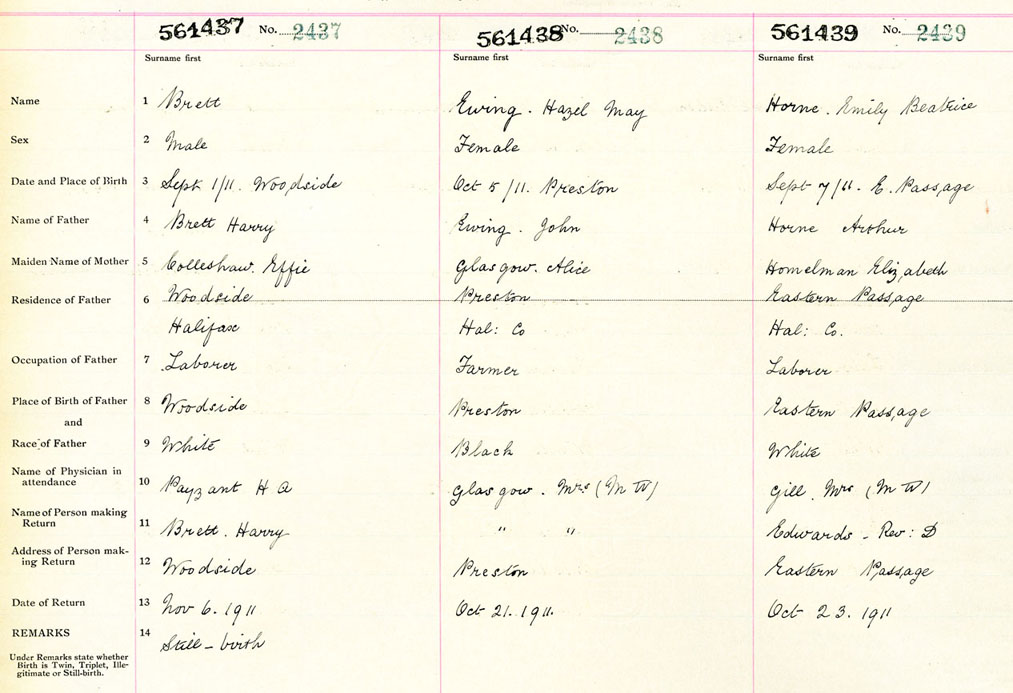 561437 No. 2437 561438 No. 2438 561439 No. 2439
Surname first Surname first Surname first
Name 1 Brett Ewing. Hazel May Horne. Emily Beatrice
Sex 2 Male Female Female
Date and Place of Birth 3 Sept 1/11. Woodside Oct 5/11. Preston Sept 7/11. E. Passage
Name of Father 4 Brett Harry Ewing. John Horne Arthur
Maiden Name of Mother 5 Colleshaw. Effie Glasgow. Alice Homelman Elizabeth
Residence of Father 6 Woodside Preston Eastern Passage
Halifax Hal: Co Hal: Co.
Occupation of Father 7 Laborer Farmer Laborer
Place of Birth of Father 8 Woodside Preston Eastern Passage
and
Race of Father 9 White Black White
Name of Physician in
attendance 10 Payzant H A Glasgow. Mrs (M W) Gill. Mrs (M W)
Name of Person making
Return 11 Brett. Harry " " Edwards - Rev: D
Address of Person mak-
ing Return 12 Woodside Preston Eastern Passage
Date of Return 13 Nov 6. 1911 Oct 21. 1911. Oct 23. 1911
REMARKS 14 Still-birth
Under Remarks state whether
Birth is Twin, Triplet, Ille-
gitimate or Still-birth.